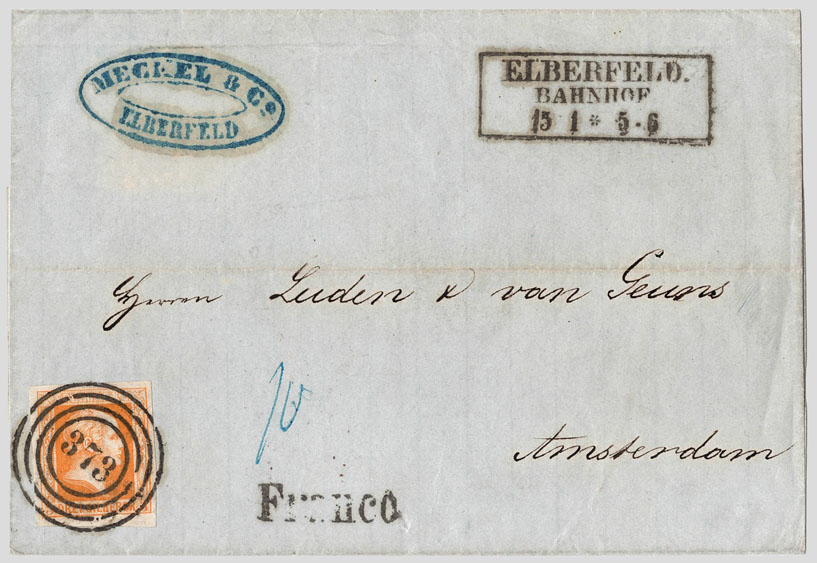 MECKEL & Co.
ELBERFELD
ELBERFELD.
BAHNHOF
15 1 * 5-6
Herren Luden & van Geuns
Amsterdam
373
Franco